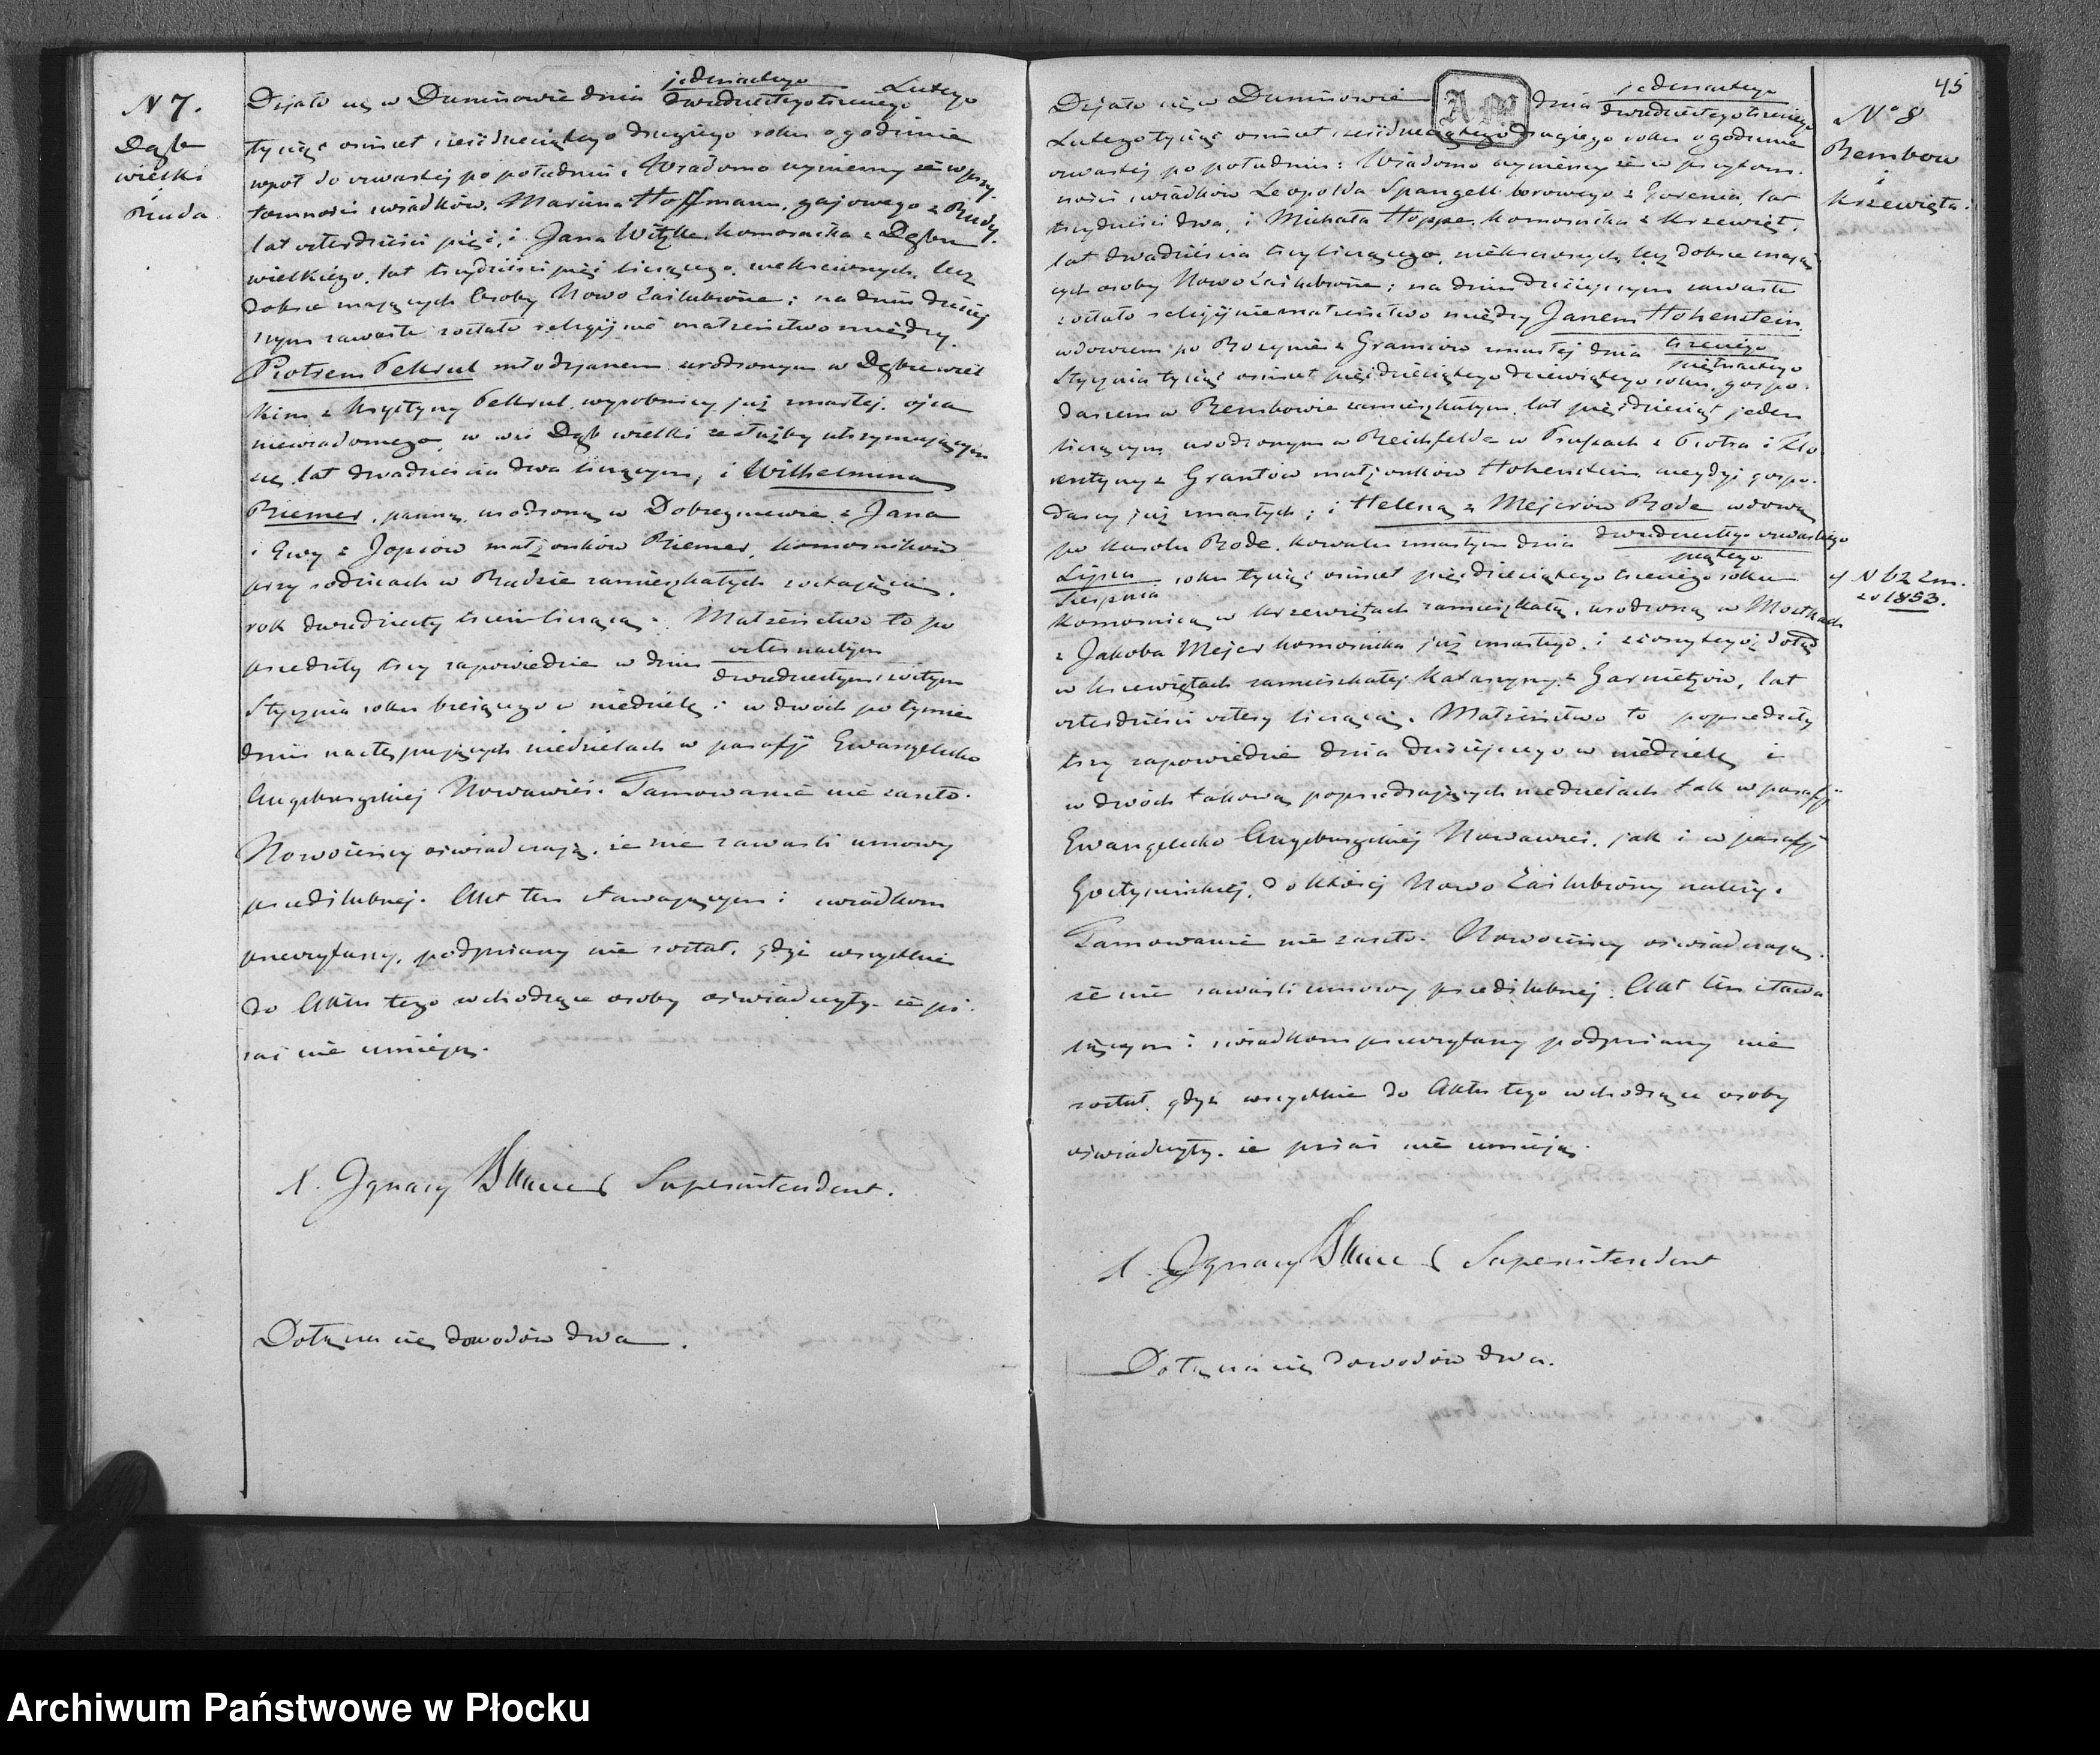 N 7.
Dąb
wielki
i
Ruda.
Działo się w Duninowie dnia jedenastego / dwudziestego trzeciego Lutego
tysiąc ośmset sześćdziesiątego drugiego roku o godzinie
wpół do czwartej po południu. Wiadomo czyniemy że w przy
tomności świadków, Marcina Hoffmann, gajowego z Rudy,
lat czterdzieści pięć, i Jana Witzke komornika z Dębu
wielkiego, lat trzydzieści pięć liczącego, niekrewnych, lecz
dobrze znających Osoby Nowo Zaślubione; na dniu dzisiej
szym zawarte zostało religijne małżeństwo między
Piotrem Pekrul młodzianem urodzonym w Dębie wiel
kim z Krystyny Pekrul, wyrobnicy już zmarłej, ojca
niewiadomego, w wsi Dąb wielki ze służby utrzymującym
się, lat dwadzieścia dwa liczącym, i Wilhelminą
Riemer, panną, urodzoną w Dobrzyniewie z Jana
i Ewy z małżonków Riemer, komorników
przy rodzicach w Rudzie zamieszkałych zostającą,
rok dwudziesty trzeci liczącą. Małżeństwo to po
przedziły trzy zapowiedzie w dniu czternastym / dwudziestym szóstym
Stycznia roku bieżącego w niedzielę i w dwóch po tymże
dniu następujących niedzielach w parafji Ewangelicko
Augsburgskiej Nowawieś. Tamowanie nie zaszło.
Nowożeńcy oświadczają, że nie zawarli umowy
przedślubnej. Akt ten stawającym i świadkom
przeczytany, podpisany nie został, gdyż wszystkie
do Aktu tego wchodzące osoby oświadczyły że pi
sać nie umieją.
X. Ignacy Superintendent.
Dołącza się dowodów dwa.
45
N° 8
Rembow
i
Krzewięta.
Działo się w Duninowie dnia jedenastego / dwudziestego trzeciego
Lutego tysiąc ośmset sześćdziesiątego drugiego roku o godzinie
czwartej po południu: Wiadomo czyniemy że w przytom
ności świadków Leopolda Spangell borowego z Gorenia, lat
trzydzieści dwa, i Michała Hoppe, komornika z Krzewięt,
lat dwadzieścia trzy liczącego, niekrewnych, lecz dobrze znają
cych osoby Nowo Zaślubione; na dniu dzisiejszym zawarte
zostało religijne małżeństwo między Janem Hohenstein
wdowcem po Rozynie z zmarłej dnia trzeciego / piętnastego
Stycznia tysiąc ośmset pięćdziesiątego dziewiątego roku, gospo
darzem w Rembowie zamieszkałym, lat pięćdziesiąt jeden
liczącym, urodzonym w Reichfelde w Prusach z Piotra i Flo
rentyny z Grantów małżonków Hohenstein niegdyś gospo
darzy już zmarłych; i Heleną z Mejerów Rode wdową
po Karolu Rode, kowalu zmarłym dnia dwudziestego czwartego / piątego
Lipca / Sierpnia roku tysiąc ośmset pięćdziesiątego trzeciego roku
N 62 zm.
zr 1853.
komornicą w Krzewiętach zamieszkałą, urodzoną w Mostkach
z Jakoba Mejer komornika już zmarłego, i żyjącej dotąd
w Krzewiętach zamieszkałej Katarzyny z, lat
czterdzieści cztery liczącą. Małżeństwo to poprzedziły
trzy zapowiedzie dnia dzisiejszego w niedzielę i
w dwóch takową poprzedzających niedzielach tak w parafji
Ewangelicko Augsburgskiej Nowawieś, jak i w parafji
Gostynińskiej, do której Nowo Zaślubiony należy.
Tamowanie nie zaszło. Nowożeńcy oświadczają,
że nie zawarli umowy przedślubnej. Akt ten stawa
jącym i świadkom przeczytany podpisany nie
został, gdyż wszystkie do Aktu tego wchodzące osoby
oświadczyły, że pisać nie umieją.
X. Ignacy Superintendent
Dołącza się dowodów dwa.
Archiwum Państwowe w Płocku